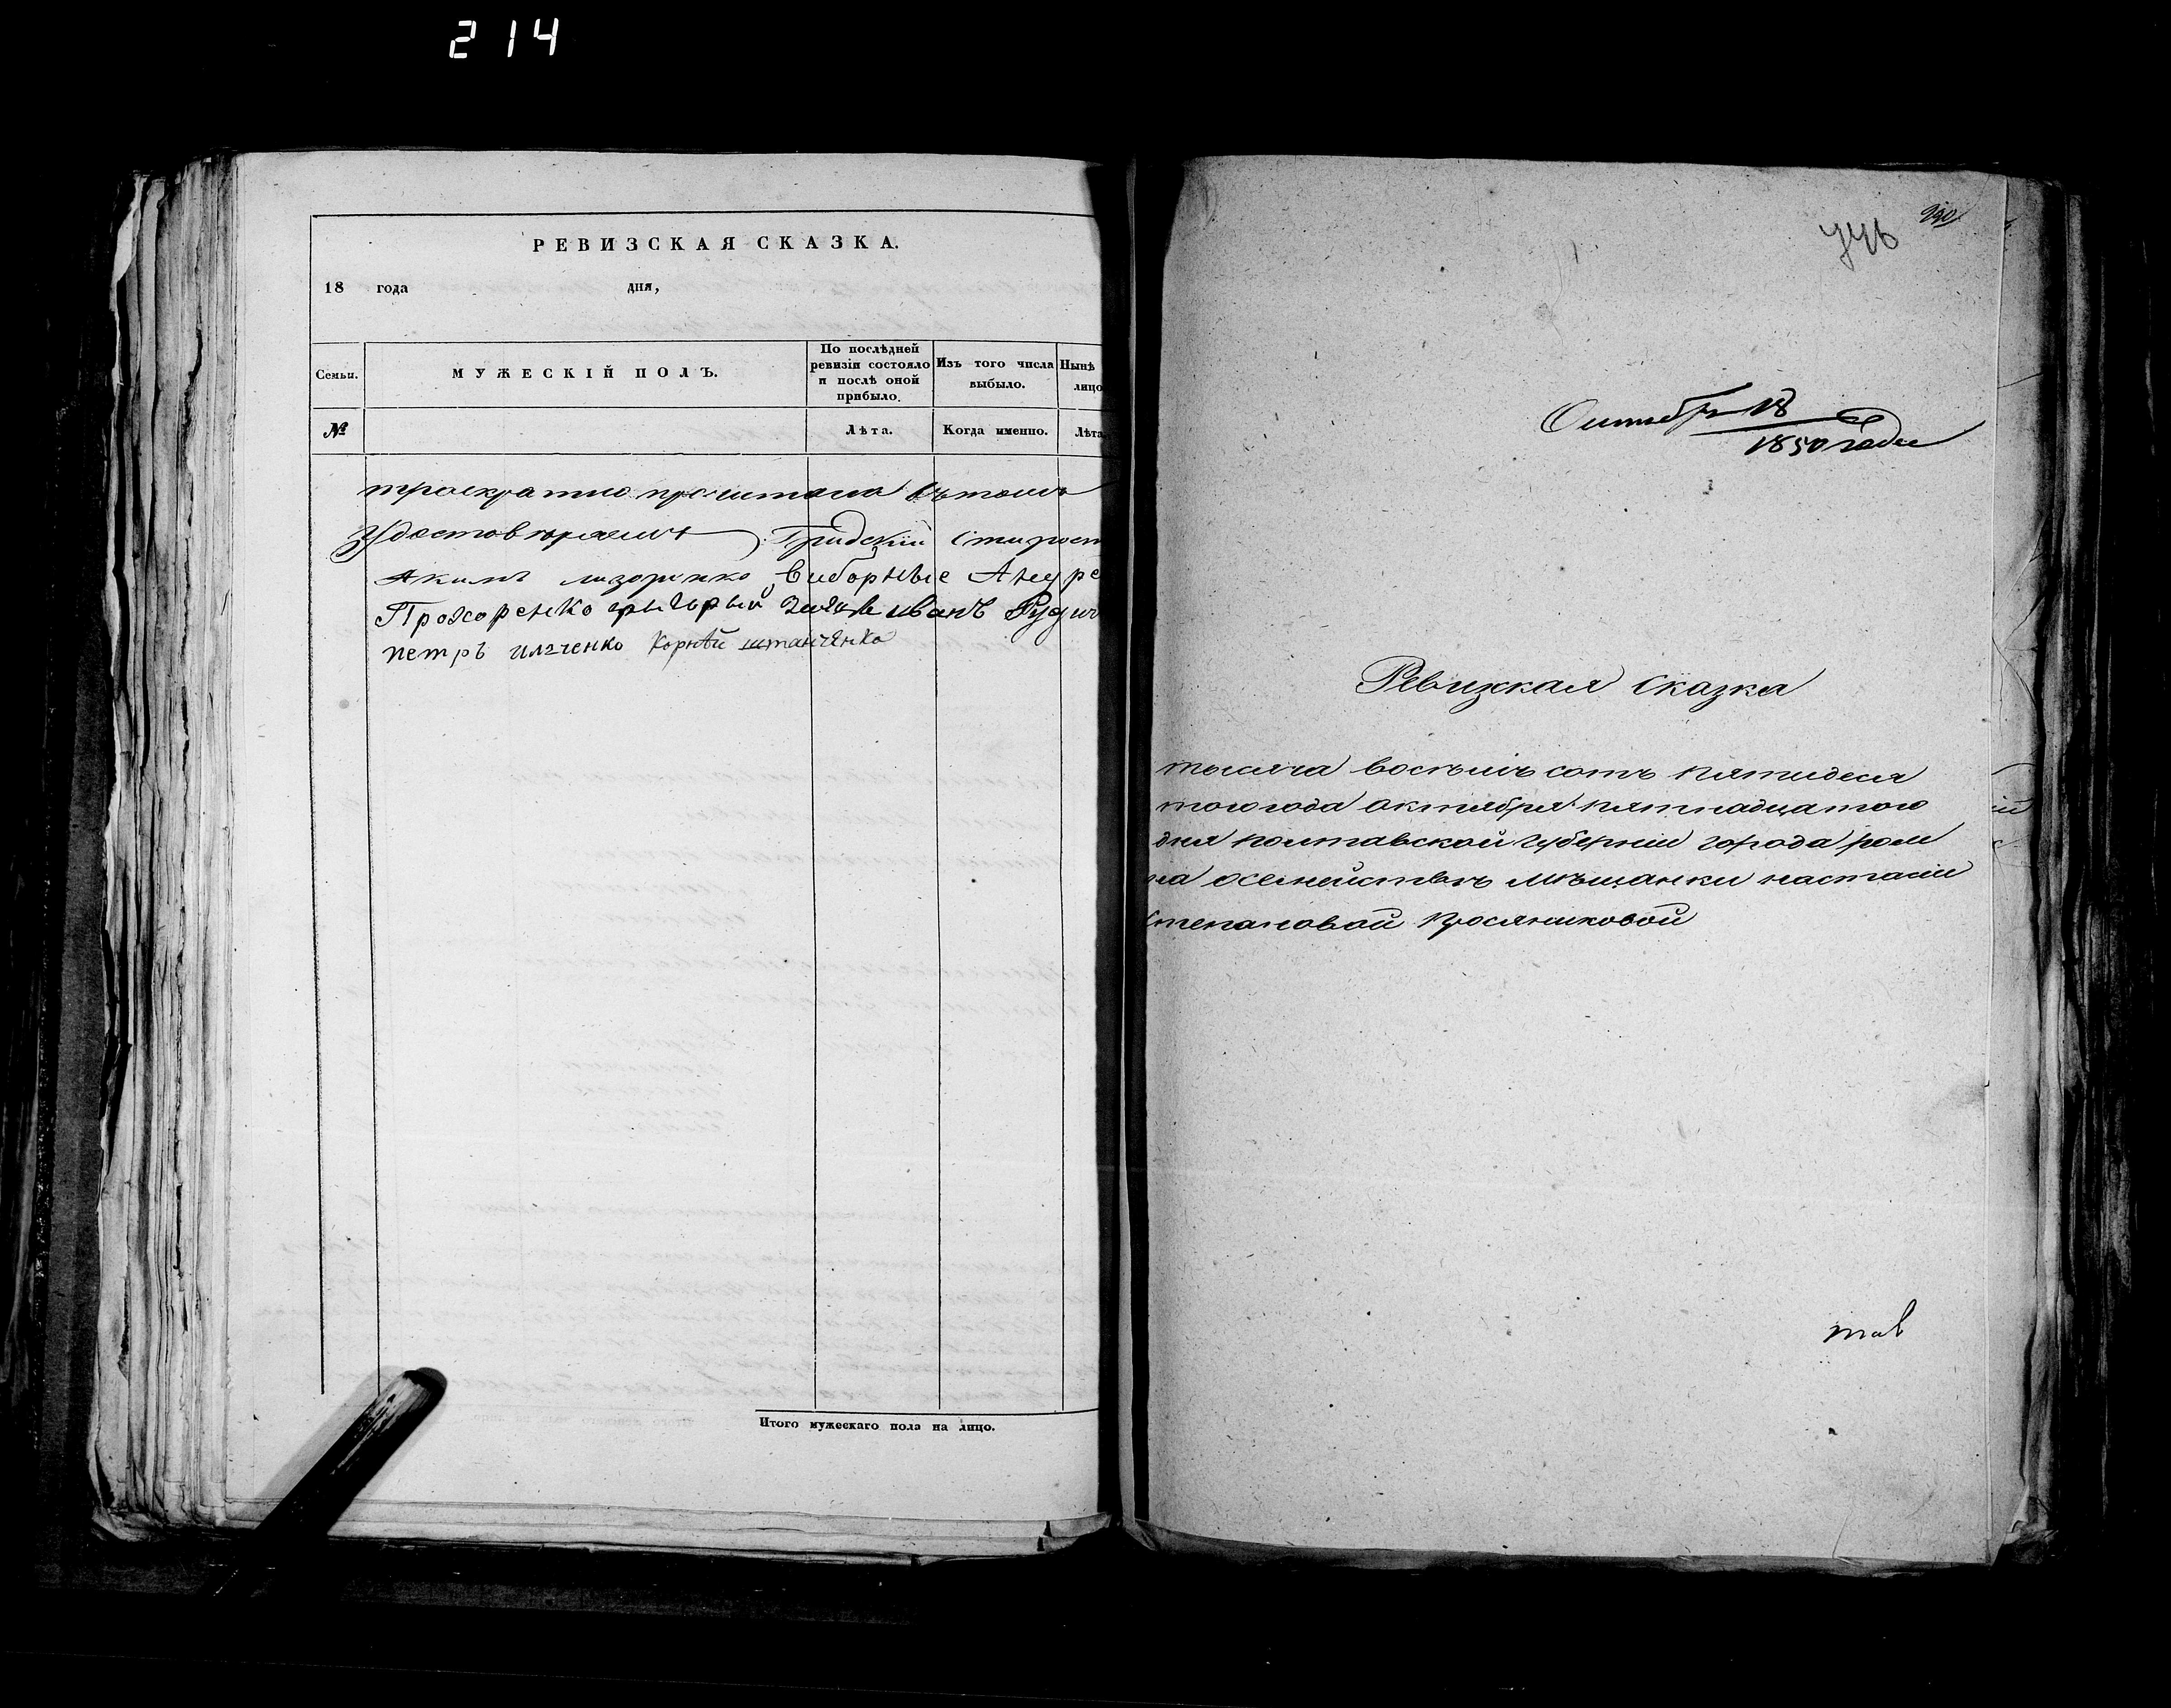 214
РЕВИЗСКАЯ СКАЗКА.
18 года дня,
Семьи.
МУЖЕСКІЙ ПОЛЪ.
По послѣдней ревизіи состояло и послѣ оной прибыло.
Изъ того числа выбыло.
Нынѣ лицо
№
Лѣта.
Когда именно.
Лѣта
троекратно прочитана вътомъ
Удостовѣряемъ Градскій Старост
Акимъ лазоренко выборные Андре
Прохоренко григорий иванъ Рудич
петръ илченко Корнѣй штанченко
Итого мужескаго пола на лицо.
290
Октября 18
1850 года
Ревизская Сказка
тысяча восемь сотъ пятидеся
того года октября пятнадцатого
дня полтавской губерніи города ром
на осемействѣ мѣщанки настасіи
Степановой Просяниковой